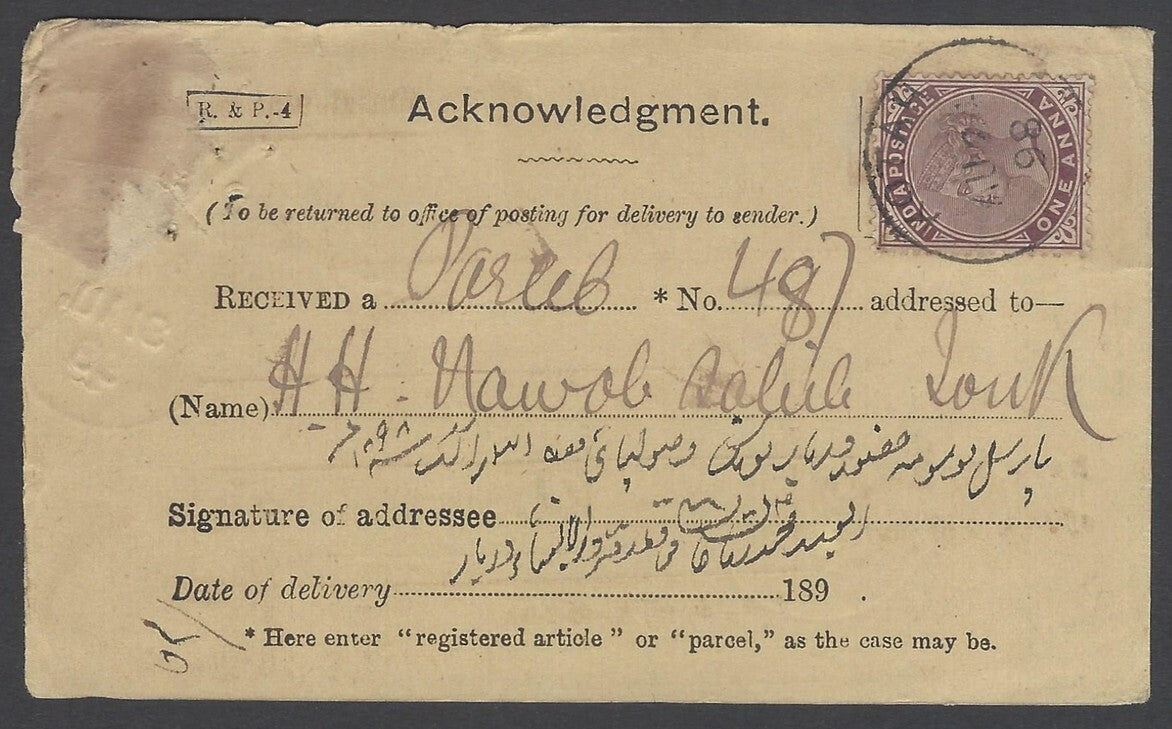 R. & P.-4
Acknowledgment.
INDIA POSTAGE
ONE ANNA
98
(To be returned to office of posting for delivery to sender.)
RECEIVED a Parcel * No. 487 addressed to—
(Name) H H - Nawab Sahib Tonk
پارسل موسومہ حضور دربار ٹونک وصول پائی
Signature of addressee
العبد محمد
Date of delivery 189 .
* Here enter “registered article” or “parcel,” as the case may be.